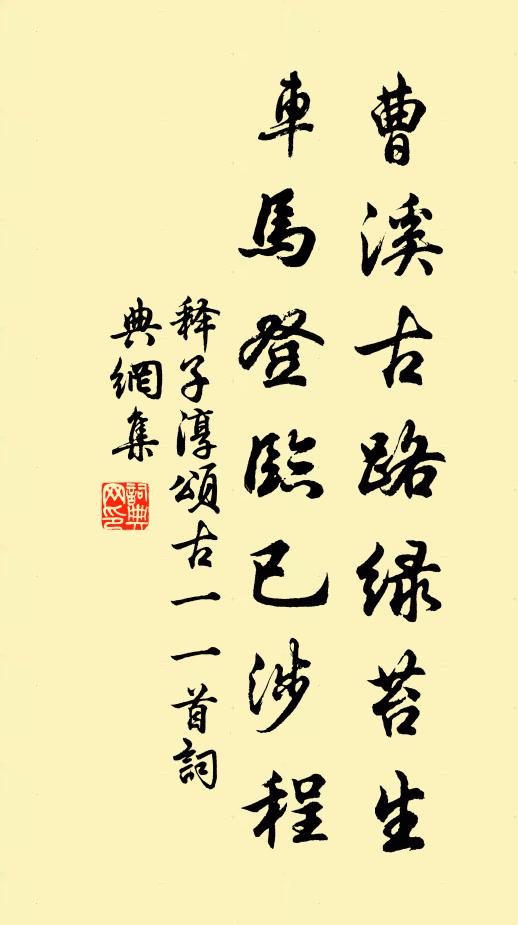 曹溪古路绿苔生
車馬登臨已涉程
释子淳頌古一一首詞
典網集
詞典网印